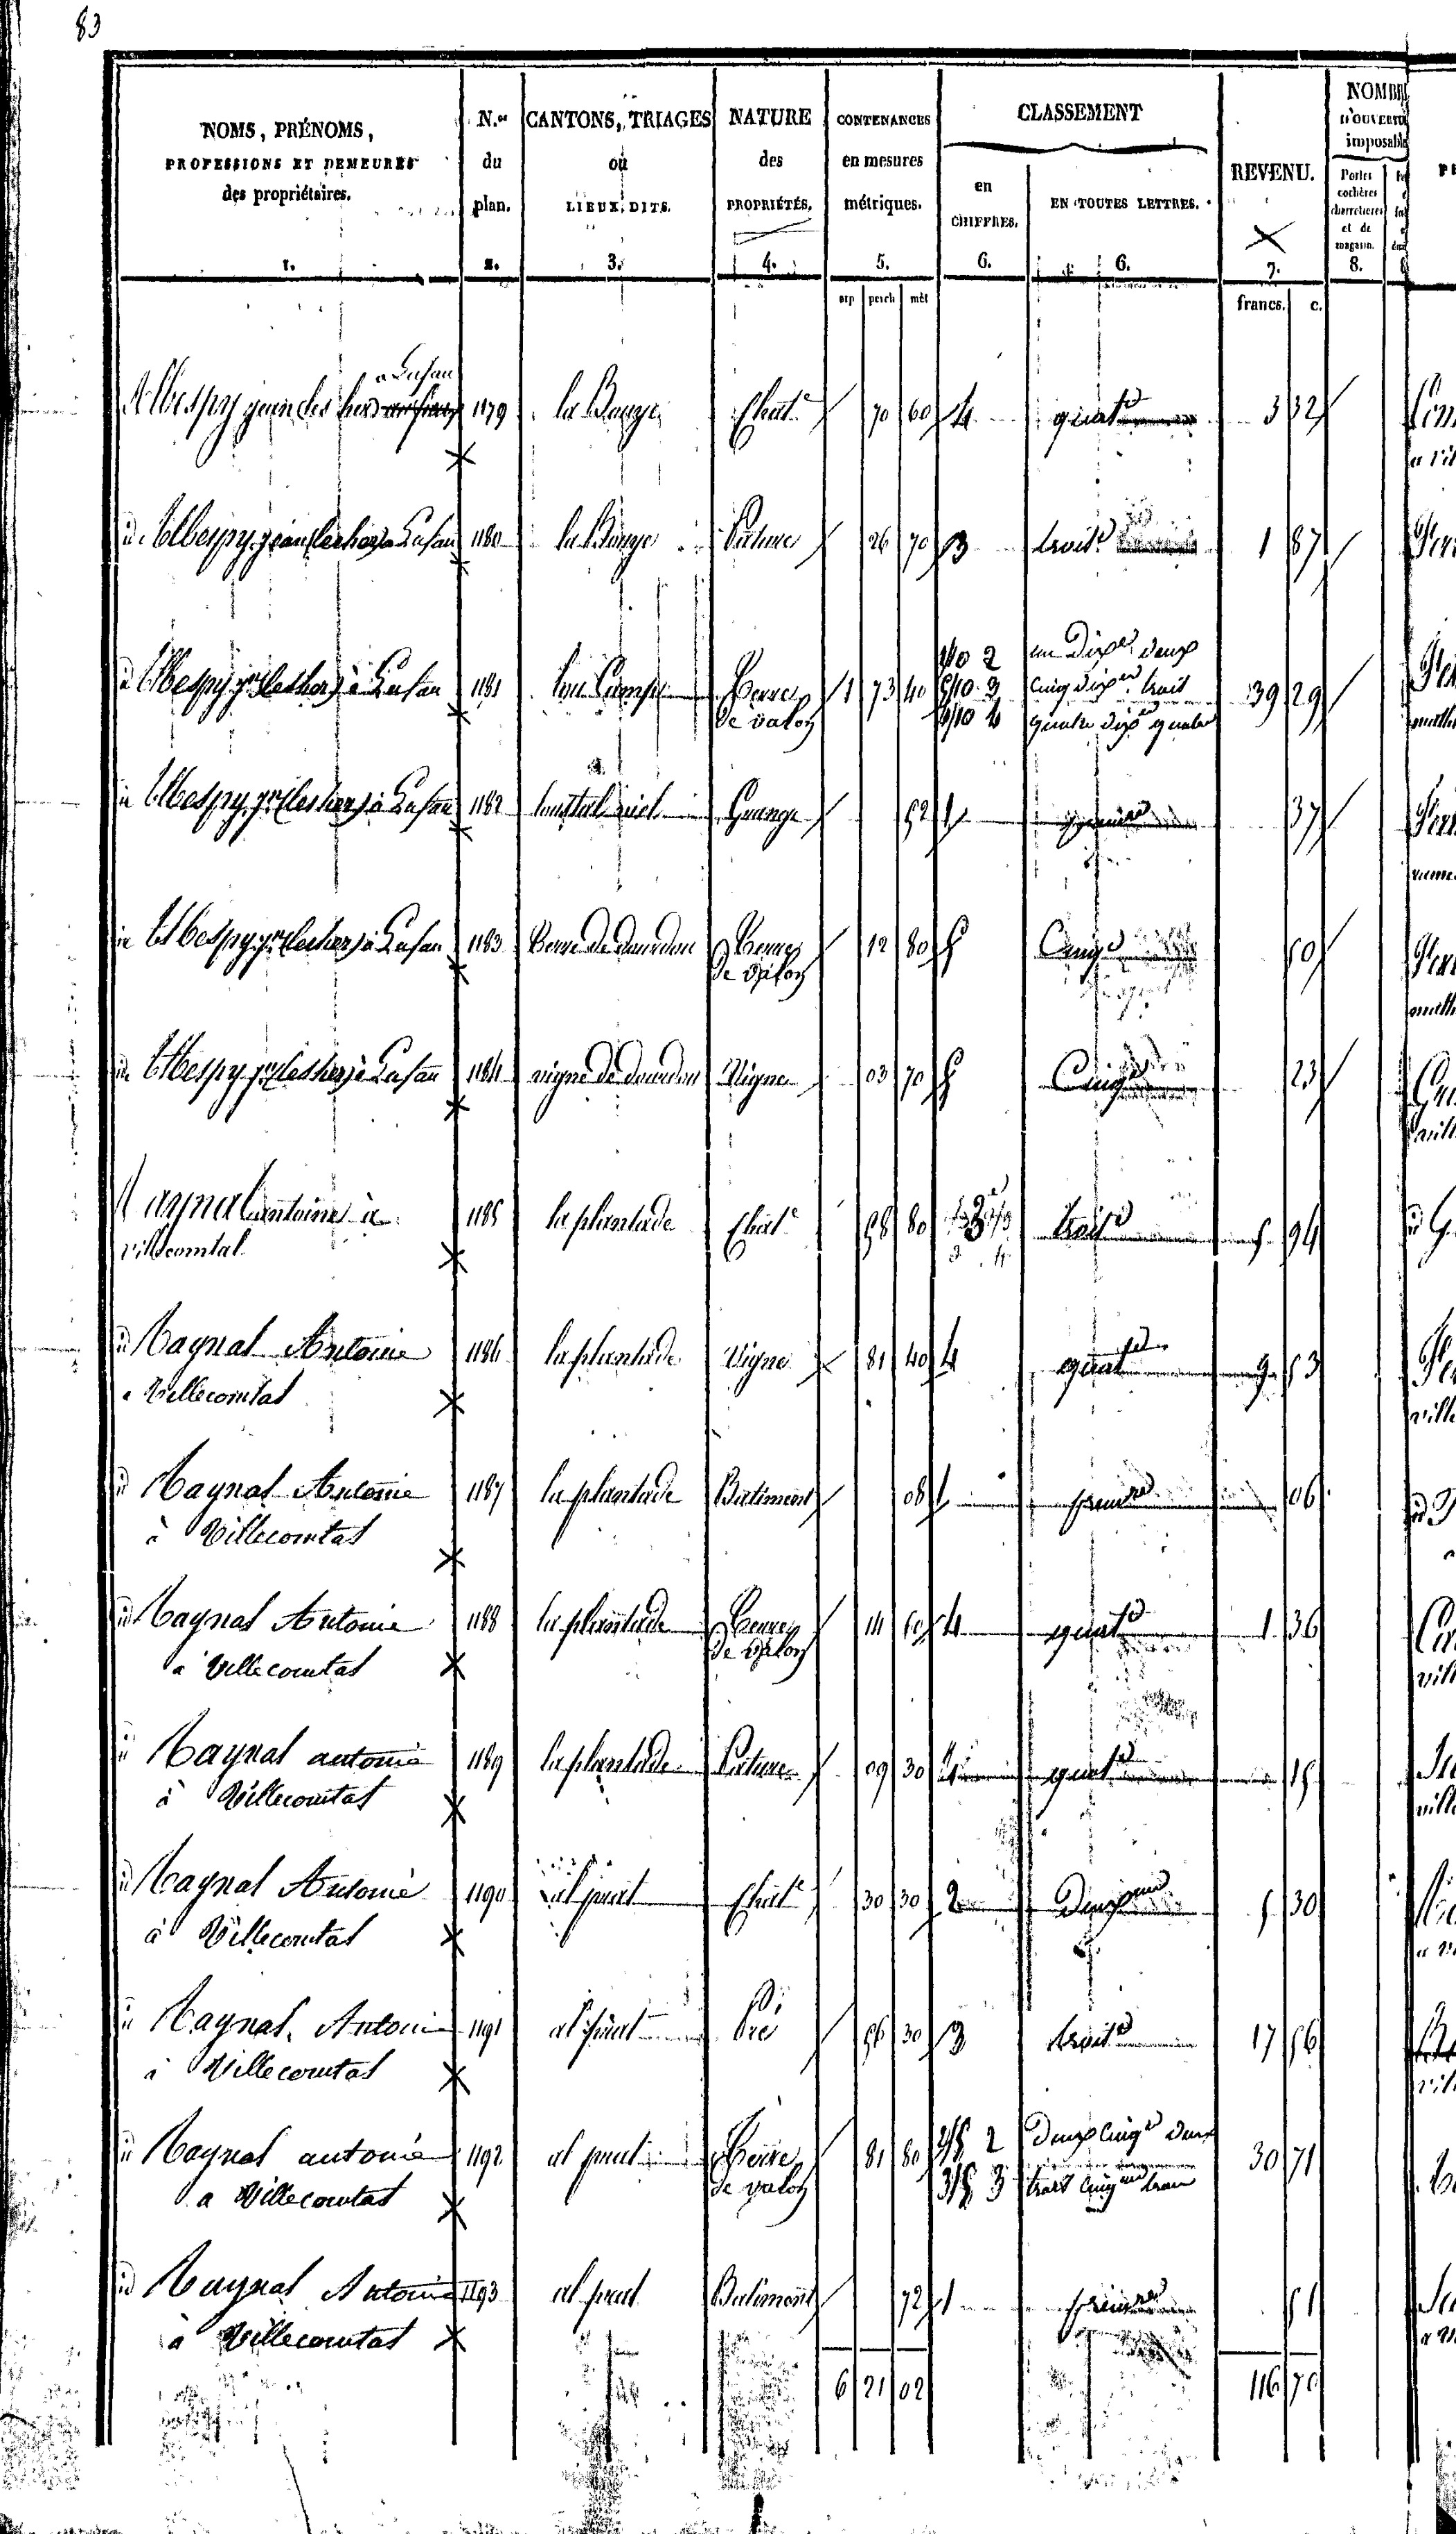 83
NOMS, PRÉNOMS, PROFESSIONS ET DEMEURES des propriétaires. 1.
N.os du plan. 2.
CANTONS, TRIAGES ou LIEUX, DITS. 3.
NATURE des PROPRIÉTÉS. 4.
CONTENANCES en mesures métriques. 5.
CLASSEMENT
en CHIFFRES. 6.
EN TOUTES LETTRES. 6.
REVENU. 7.
Portes cochères charretieres et de magasin. 8.
arp perch mèt
francs. c.
a Lusan
Albespy jean les hers 1179 la Bouye Chate 70 60 4 quate 3 32
id Albespy jean (les hers) a Lusan 1180 la Bouye Pature 26 70 3 troise 1 87
id Albespy jn (les hers) à Lusan 1181 lou Camp Terre de valon 1 73 40 39 29
1/10 2 un Dixe deux
5/10 3 cinq dixe trois
4/10 4 quatre dixe quatre
id Albespy jn (les hers) à Lusan 1182 Grange 52 1 premiere 37
id Albespy jn (les hers) à Lusan 1183 Terre de dourdou Terre de valon 12 80 5 Cinqe 50
id Albespy jn (les hers) à Lusan 1184 vigne de dourdou Vigne 03 70 5 Cinqe 23
Raynal antoine à 1185 la plantade Chate 58 80 3 troise 5 94
villecomtal
id Raynal Antoine 1186 la plantade Vigne 81 40 4 quate 9 53
a Villecomtal
id Raynal Antoine 1187 la plantade Batiment 08 1 premre 06
à Villecomtal
id Raynal Antoine 1188 la plantade Terre de valon 14 60 4 quate 1 36
a Villecomtal
id Raynal antoine 1189 la plantade Pature 09 30 4 quate 15
à Villecomtal
id Raynal Antoine 1190 al prat Chate 30 30 2 Deuxme 5 30
à Villecomtal
id Raynal Antoine 1191 al prat Pré 56 30 3 troise 17 56
à Villecomtal
id Raynal antoine 1192 al prat Terre de valon 81 80 2/5 2 Deux Cinqe deux 30 71
a Villecomtal 3/5 3 trois Cinqme trois
id Raynal Antoine 1193 al prat Batiment 72 1 premre 51
à Villecomtal
6 21 02 116 70